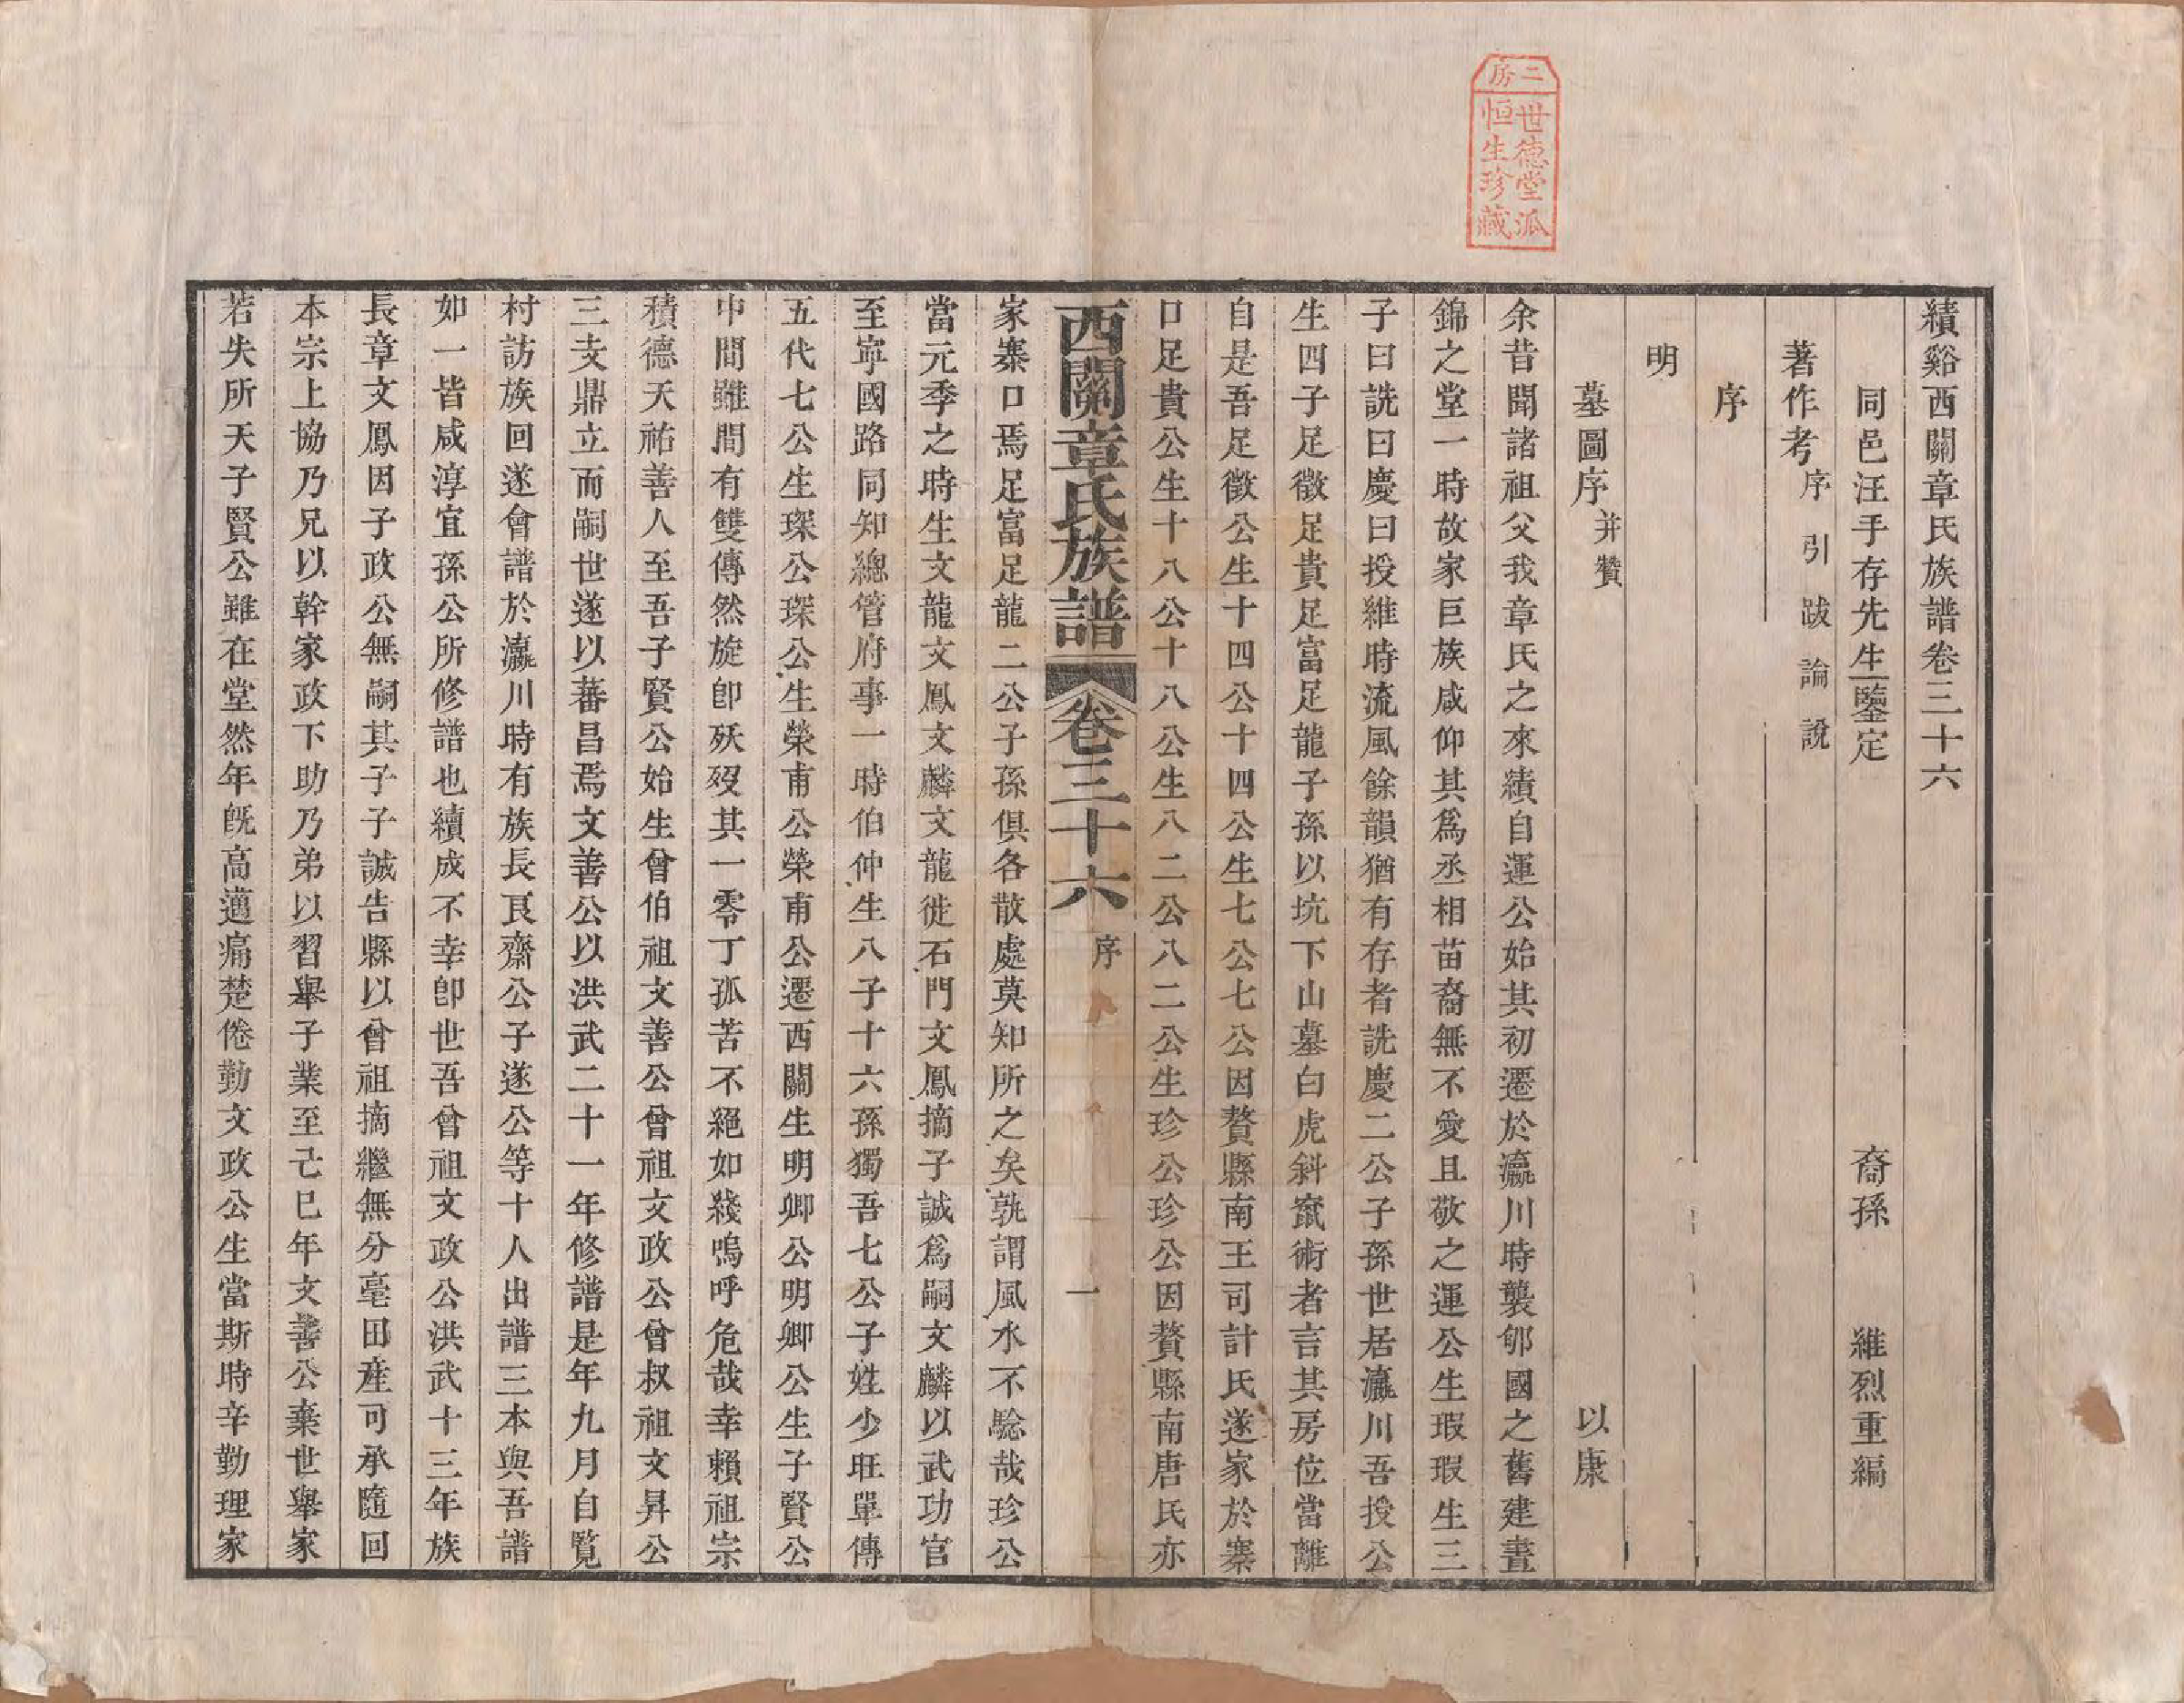 二房
世德堂派
恒生珍藏
績谿西關章氏族譜卷三十六
同邑汪手存先生鑒定　裔孫　維烈重編
著作考序引跋論說
序
明
墓圖序并贊　以康
余昔聞諸祖父我章氏之來績自運公始其初遷於瀛川時襲郇國之舊建晝
錦之堂一時故家巨族咸仰其爲丞相苗裔無不愛且敬之運公生瑕瑕生三
子曰詵曰慶曰授維時流風餘韻猶有存者詵慶二公子孫世居瀛川吾授公
生四子足徵足貴足富足龍子孫以坑下山墓白虎斜竄術者言其房位當離
自是吾足徵公生十四公十四公生七公七公因贅縣南王司計氏遂家於寨
口足貴公生十八公十八公生八二公八二公生珍公珍公因贅縣南唐氏亦
西關章氏族譜　卷三十六　序　一
家寨口焉足富足龍二公子孫俱各散處莫知所之矣孰謂風水不騐哉珍公
當元季之時生文龍文鳳文麟文龍徙石門文鳳摘子誠爲嗣文麟以武功官
至寧國路同知總管府事一時伯仲生八子十六孫獨吾七公子姓少旺單傳
五代七公生琛公琛公生榮甫公榮甫公遷西關生明卿公明卿公生子賢公
中間雖間有雙傳然旋卽殀歿其一零丁孤苦不絕如綫嗚呼危哉幸賴祖宗
積德天祐善人至吾子賢公始生曾伯祖文善公曾祖文政公曾叔祖文昇公
三支鼎立而嗣世遂以蕃昌焉文善公以洪武二十一年修譜是年九月自覽
村訪族回遂會譜於瀛川時有族長艮齋公子遂公等十人出譜三本與吾譜
如一皆咸淳宜孫公所修譜也續成不幸卽世吾曾祖文政公洪武十三年族
長章文鳳因子政公無嗣其子子誠告縣以曾祖摘繼無分毫田產可承隨回
本宗上協乃兄以幹家政下助乃弟以習舉子業至己巳年文善公棄世舉家
若失所天子賢公雖在堂然年旣高邁痛楚倦勤文政公生當斯時辛勤理家